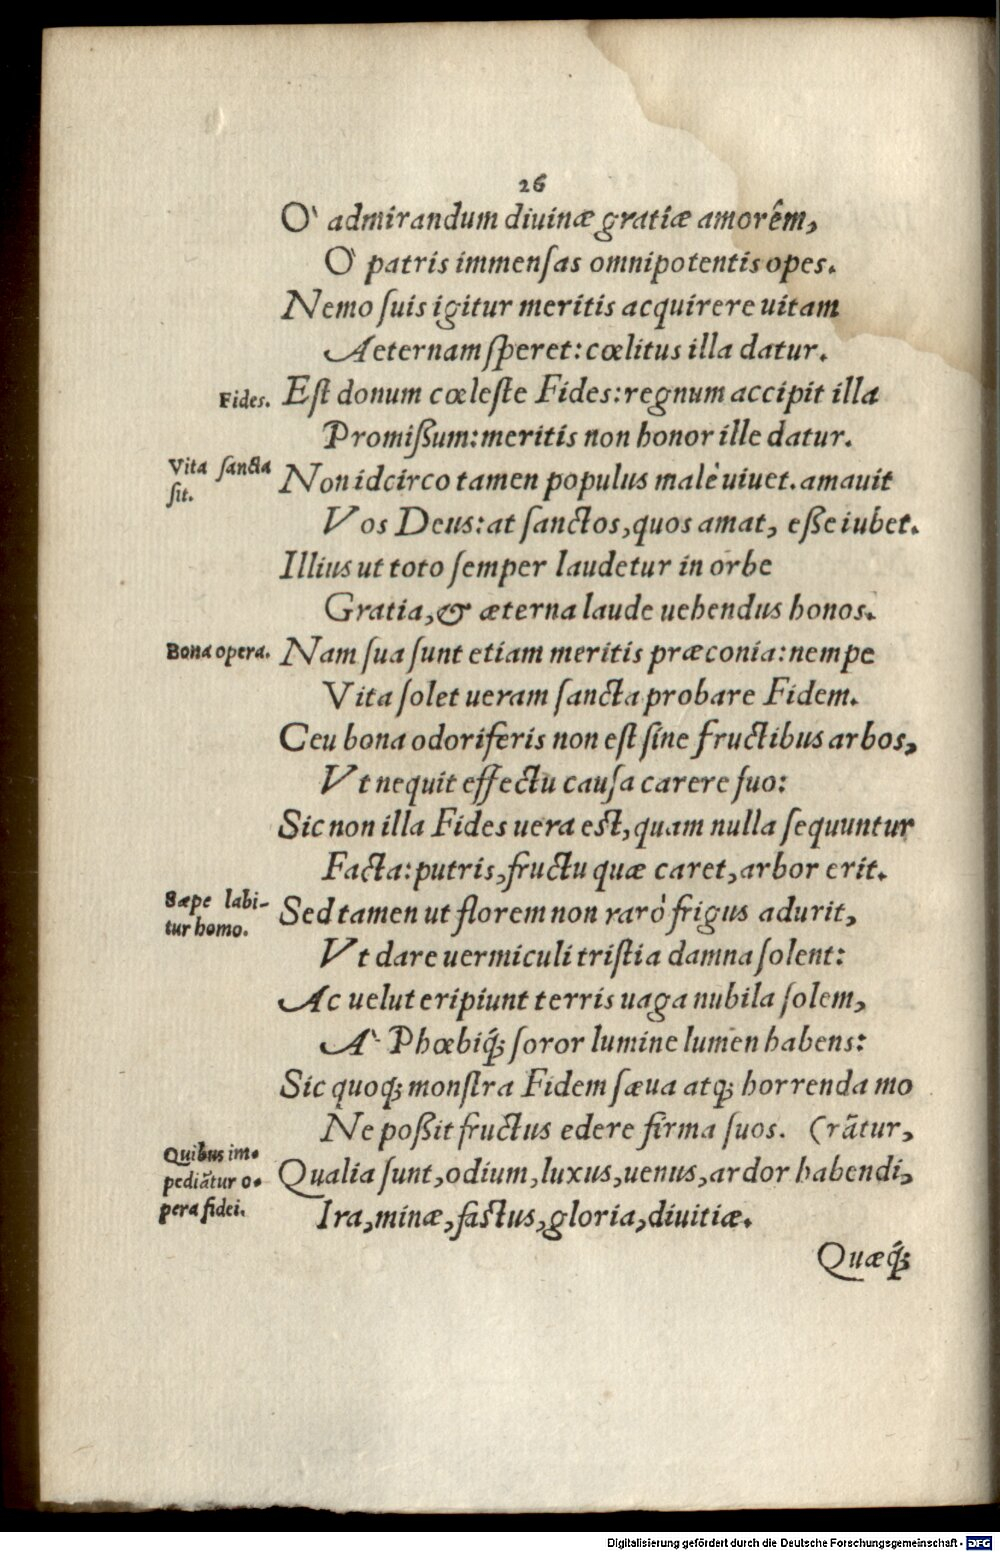 26
O` admirandum diuinæ gratiæ amorêm,
O` patris immenſas omnipotentis opes.
Nemo ſuis igitur meritis acquirere uitam
Aeternam ſperet: cœlitus illa datur.
Fides. Eſt donum cœleſte Fides: regnum accipit illa
Promiſsum: meritis non honor ille datur.
Vita ſancta
ſit.
Non idcirco tamen populus malè uiuet. amauit
Vos Deus: at ſanctos, quos amat, eſse iubet.
Illius ut toto ſemper laudetur in orbe
Gratia, & æterna laude uehendus honos.
Bona opera. Nam ſua ſunt etiam meritis præconia: nempe
Vita ſolet ueram ſancta probare Fidem.
Ceu bona odoriferis non eſt ſine fructibus arbos,
Vt nequit effectu cauſa carere ſuo:
Sic non illa Fides uera eſt, quam nulla ſequuntur
Facta: putris, fructu quæ caret, arbor erit.
Sæpe labi-
tur homo.
Sed tamen ut florem non rarò frigus adurit,
Vt dare uermiculi triſtia damna ſolent:
Ac uelut eripiunt terris uaga nubila ſolem,
A` Phœbiq́; ſoror lumine lumen habens:
Sic quoq; monſtra Fidem ſæua atq; horrenda mo
Ne poſsit fructus edere firma ſuos. (rātur,
Quibus im-
pediātur o-
pera fidei.
Qualia ſunt, odium, luxus, uenus, ardor habendi,
Ira, minæ, faſtus, gloria, diuitiæ.
Quæq́;
Digitalisierung gefördert durch die Deutsche Forschungsgemeinschaft - DFG